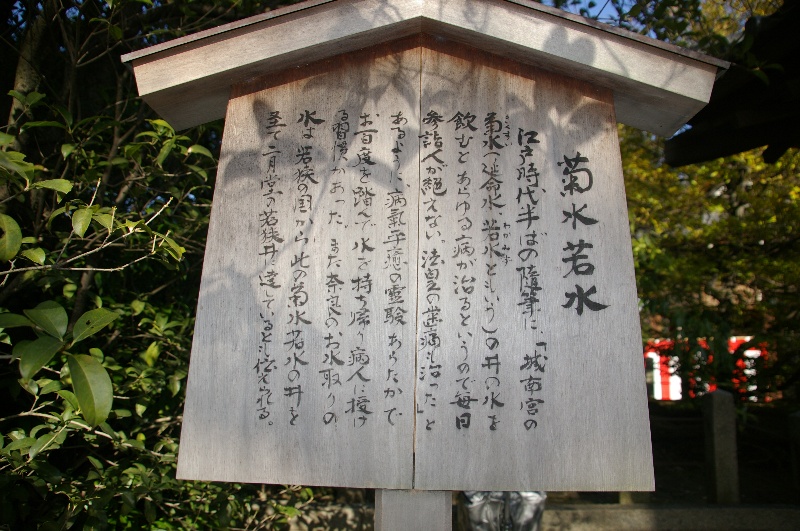 菊水若水
江戸時代半ばの随筆に、「城南宮の
きくすい
菊水(延命水、若水ともいう)の井の水を
わかみず
飲むとあらゆる病が治るというので毎日
参詣人が絶えない。法皇の歯痛も治った」と
あるように、病氣平癒の霊験あらたかで
お百度を踏んで水を持ち帰り病人に授け
る習慣があった。また奈良のお水取りの
水は若狭の国から此の菊水若水の井を
至て二月堂の若狭井に達しているとも伝えられる。